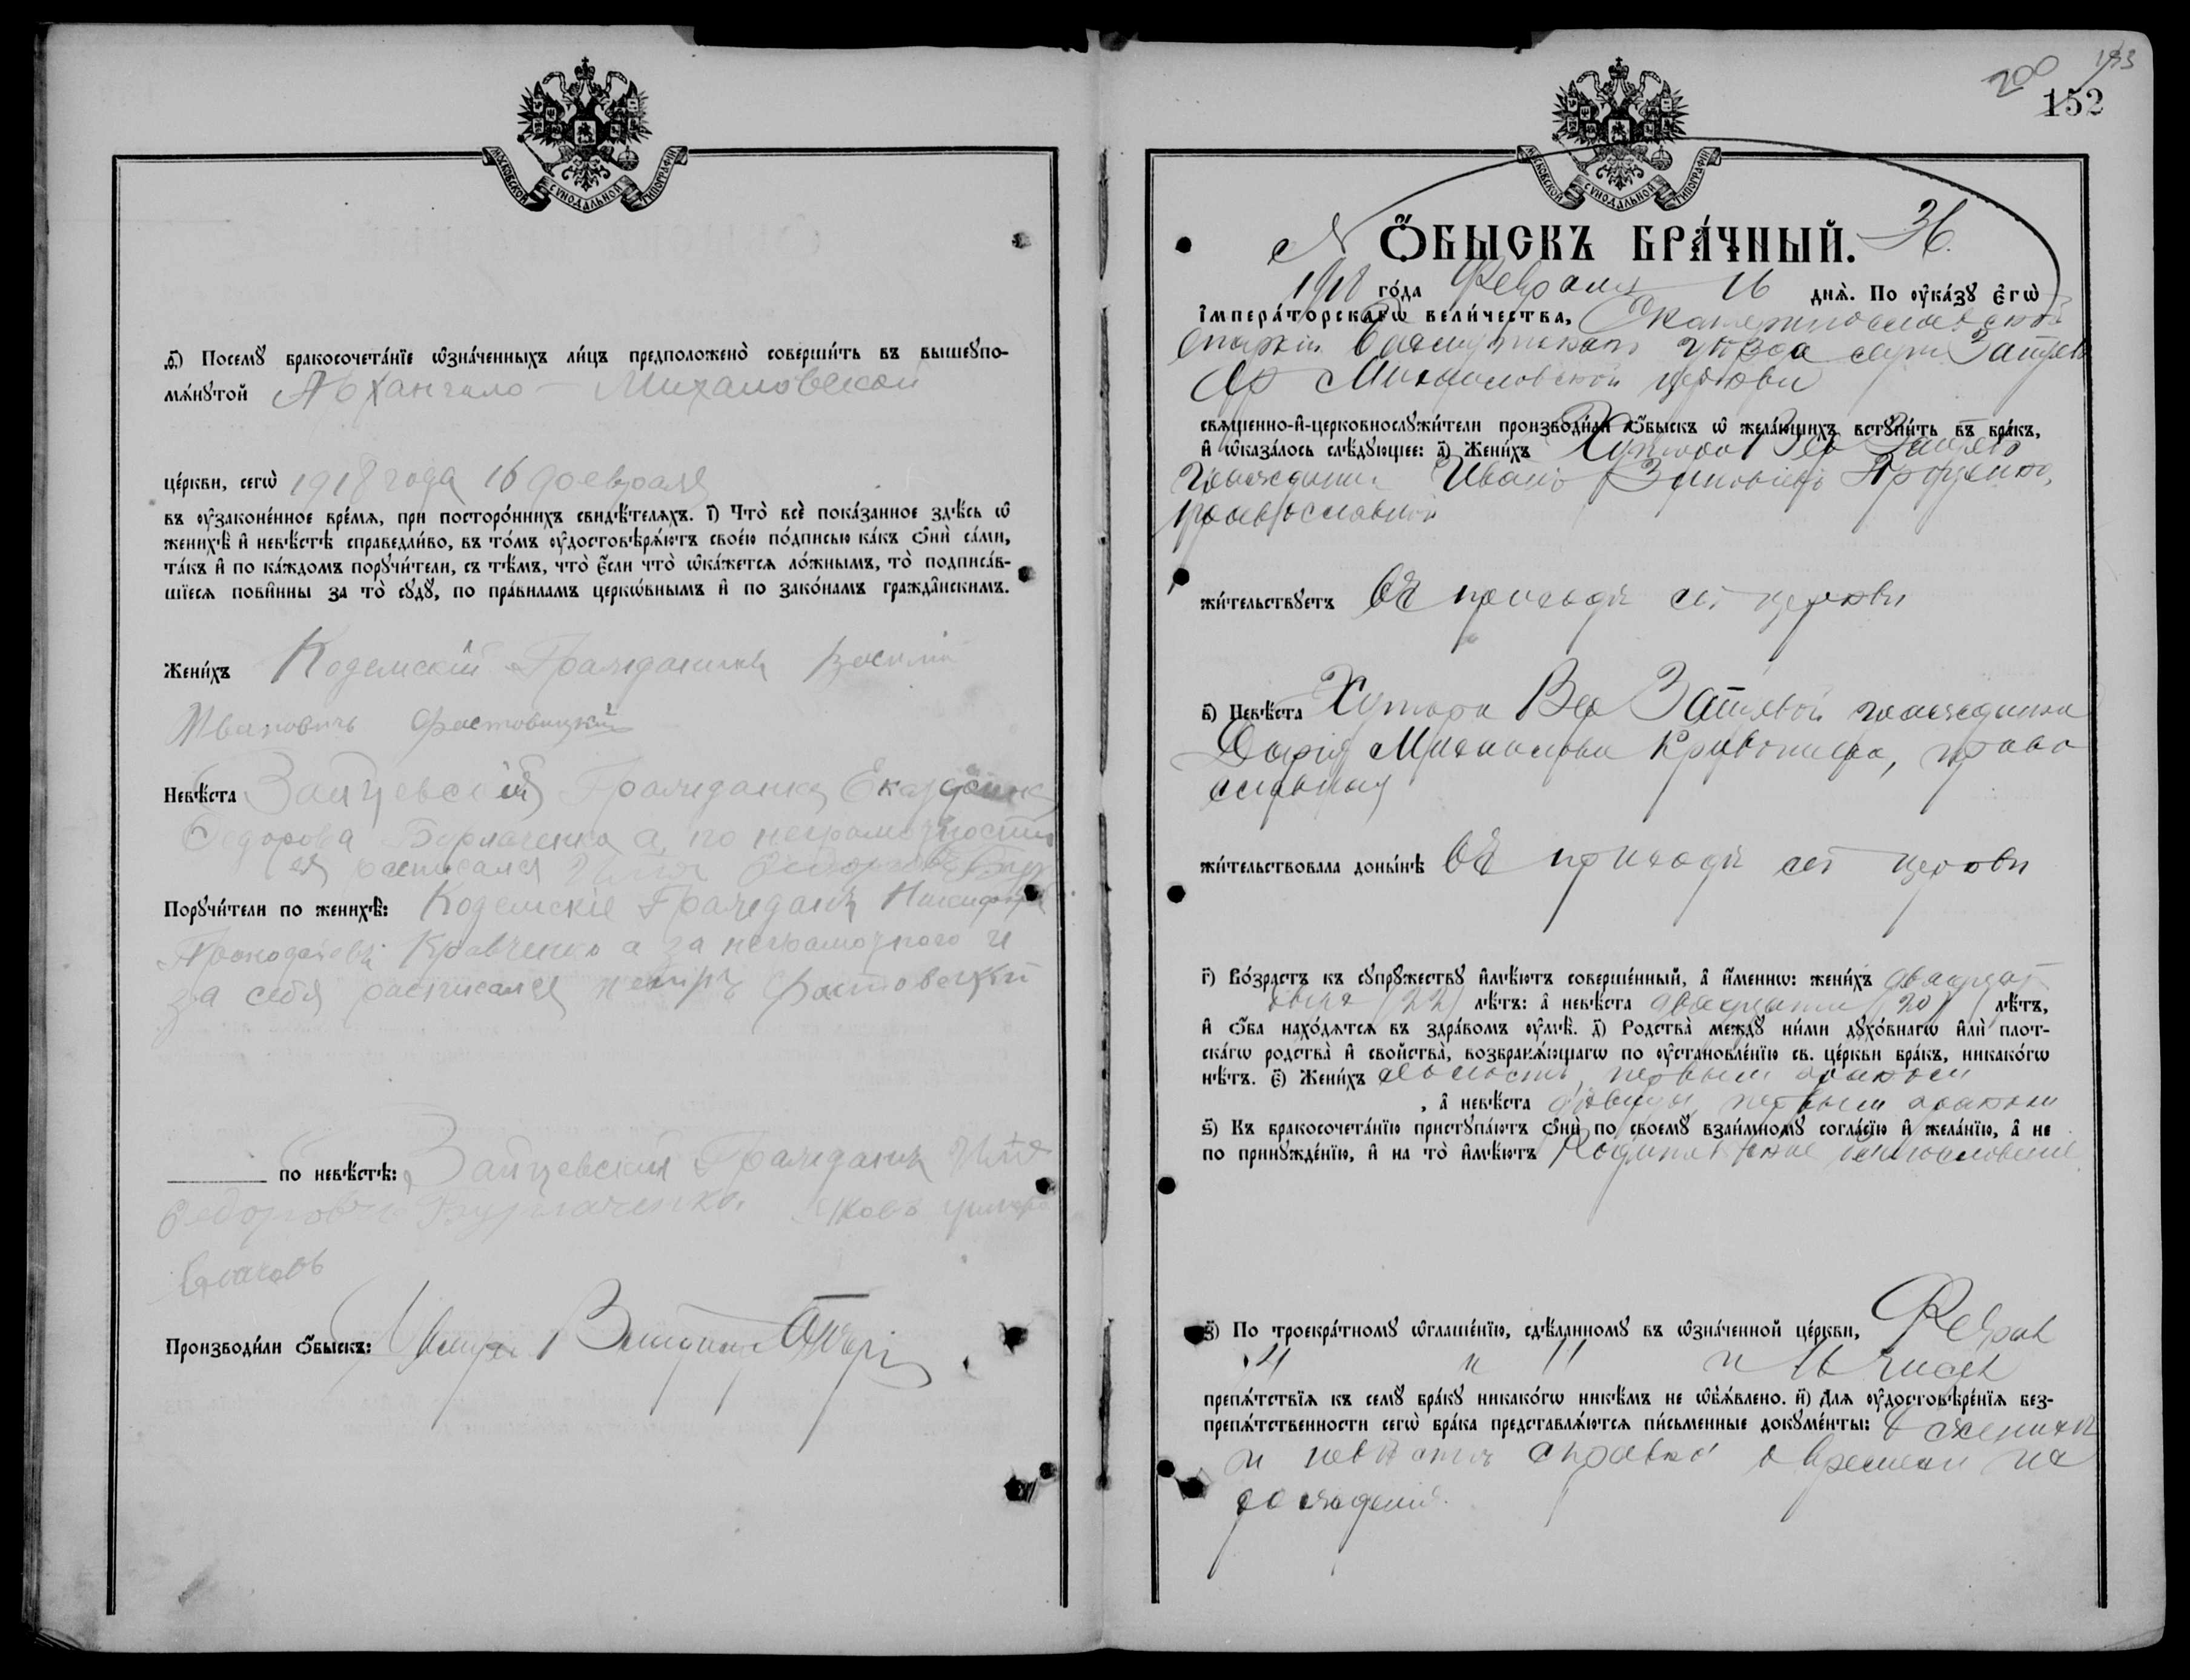 МОСКОВСКОЙ СУНОДАЛЬНОЙ ТИПОГРАФІИ
ѳ҃) Посемꙋ бракосочета́нїе ѡ҆зна́ченныхъ ли́цъ предположено̀ соверши́ть въ вышеупо-
мѧ́нутой Архангело-Михайловской
це́ркви, сегѡ̀ 1918 года 16 февраля
въ ᲂу҆законе́нное вре́мѧ, при посторо́ннихъ свидѣ́телѧхъ. і҃) Что̀ всѐ пока́занное здѣ́сь ѡ҆
женихѣ̀ и҆ невѣ́стѣ справедли́во, въ то́мъ ᲂу҆достовѣрѧ́ютъ свое́ю по́дписью ка́къ ѻ҆нѝ са́ми,
та́къ и҆ по ка́ждомъ порꙋчи́тели, съ тѣ́мъ, что̀ є҆́сли что̀ ѡ҆ка́жетсѧ ло́жнымъ, то̀ подписа́в-
шїесѧ пови́нны за то̀ сꙋдꙋ̀, по пра́виламъ церкѡ́внымъ и҆ по зако́намъ гражда̑нскимъ.
Жени́хъ Кодемскій Гражданинъ
Ивановичъ Фастовицкій
Невѣ́ста Зайцевской Гражданка
Федорова Бурлаченко а по неграмотности
ея расписался Илья
Порꙋчи́тели по женихѣ̀: Кодемскіе Граждане
Кравченко а за неграмотного и
за себя расписался Петръ Фастовецкій
по невѣ́стѣ: Зайцевскій Гражданинъ Илья
Федоровичъ Бурлаченко Яковъ
Производи́ли ѻ҆́быскъ:
200 153
152
МОСКОВСКОЙ СУНОДАЛЬНОЙ ТИПОГРАФІИ
№ Ѻ҆́БЫСКЪ БРА́ЧНЫЙ. 36.
1918 го́да Февраля 16 днѧ̀. По ᲂу҆ка́зꙋ є҆гѡ̀
і҆мпера́торскагѡ вели́чества, Екатеринославской
епархіи Бахмутскаго уѣзда села Зайцева
Ар Михайловской церкви
свѧще́нно-и҆-церковнослꙋжи́тели производи́ли ѻ҆́быскъ ѡ҆ жела́ющихъ встꙋпи́ть въ бра́къ,
и҆ ѡ҆каза́лось слѣ́дꙋющее: а҃) Жени́хъ Хутора
гражданинъ Иванъ Проценко,
православный
жи́тельствꙋетъ въ приходѣ сей церкви
в҃) Невѣ́ста Хутора Зайцевой гражданка
Дарія Михайлова, право
славная
жи́тельствовала доны́нѣ въ приходѣ сей церкви
г҃) Во́зрастъ къ сꙋпрꙋ́жествꙋ и҆мѣ́ютъ соверше́нный, а҆ и҆́меннѡ: жени́хъ двадцать
два (22) лѣ́тъ: а҆ невѣ́ста двадцати (20) лѣ́тъ,
и҆ ѻ҆́ба нахо́дѧтсѧ въ здра́вомъ ᲂу҆мѣ̀. д҃) Родства̀ междꙋ̀ ни́ми дꙋхо́внагѡ и҆лѝ плот-
ска́гѡ родства̀ и҆ сво́йства̀, возбранѧ́ющагѡ по ᲂу҆становле́нїю св. це́ркви бра́къ, никако́гѡ
нѣ́тъ. є҃) Жени́хъ холостъ, первымъ бракомъ
, а҆ невѣ́ста дѣвица, первымъ бракомъ
ѕ҃) Къ бракосочета́нїю пристꙋпа́ютъ ѻ҆нѝ по своемꙋ̀ взаи́мномꙋ согла́сїю и҆ жела́нїю, а҆ не
по принꙋжде́нїю, и҆ на то̀ и҆мѣ́ютъ Родительское благословеніе
з҃) По троекра́тномꙋ ѡ҆глаше́нїю, сдѣ́ланномꙋ въ ѡ҆зна́ченной це́ркви, Феврал
4 и 11 и 16 числа
препѧ́тствїѧ къ семꙋ̀ бра́кꙋ никако́гѡ никѣ́мъ не ѡ҆б̾ѧ́влено. и҃) Длѧ ᲂу҆достовѣре́нїѧ без-
препѧ́тственности сегѡ̀ бра́ка представлѧ́ютсѧ пи́сьменные докꙋме́нты: о женихѣ
и невѣстѣ справка о времени их
рожденія.